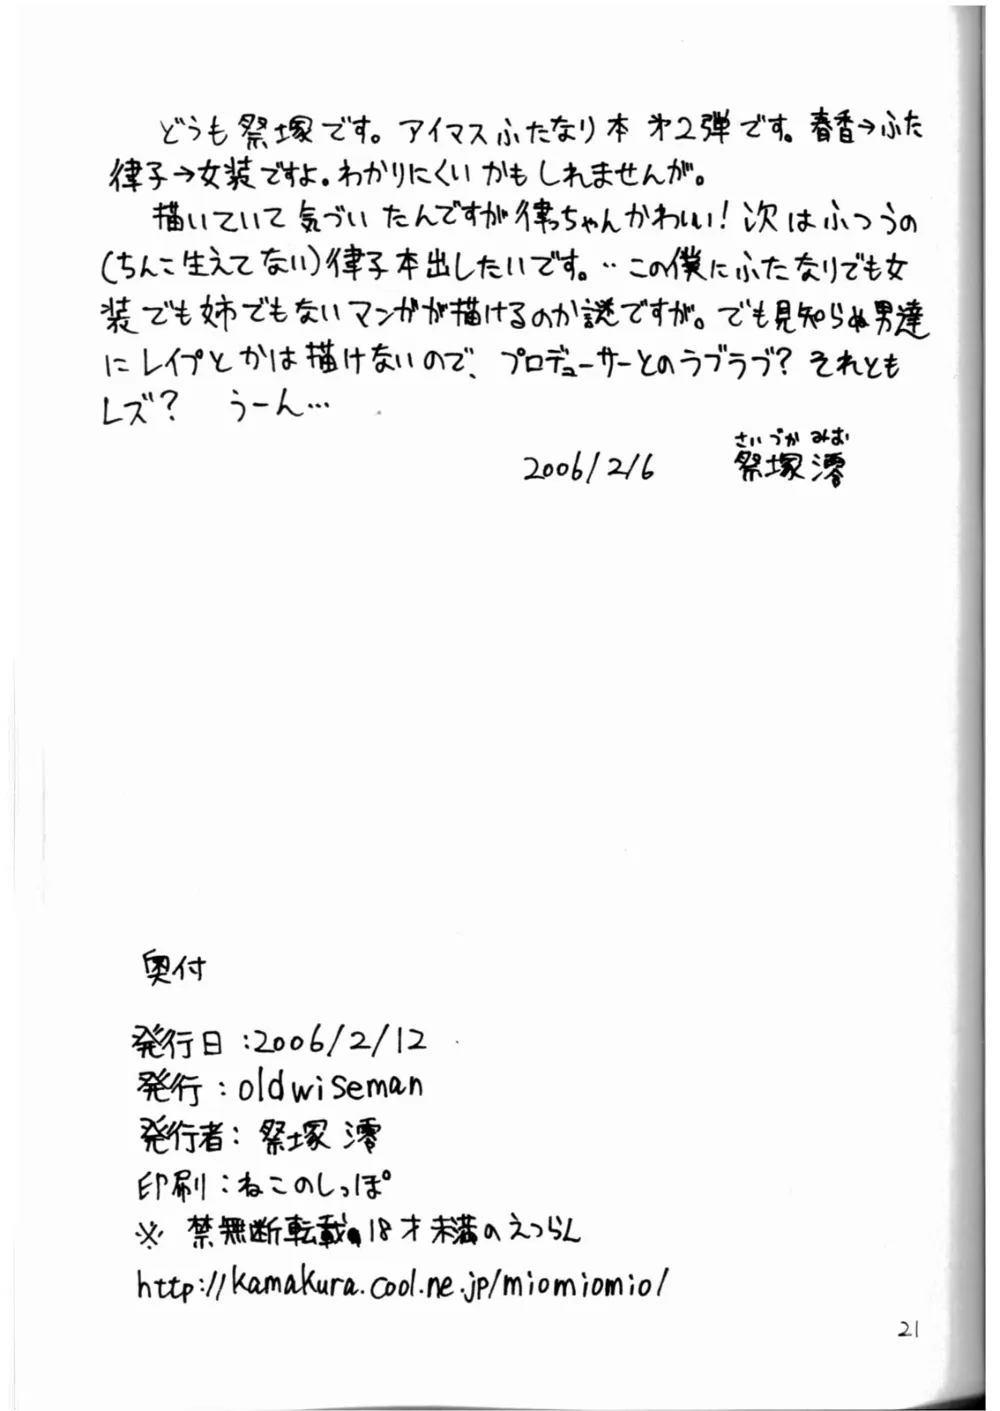 どうも祭塚です。アイマスふたなり本オ2弾です。春香→ふた
律子→女装ですよ。わかりにくいかもしれませんが。
描いていて気づいたんですが律っちゃんかわいい!次はふつうの
(ちんこ生えてない)律子本出したいです。‥この僕にふたなりでも女
装でも姉でもないマンガが描けるのか謎ですが。でも見知らぬ男達
にレイプとかは描けないので、プロデューサーとのラブラブ?それとも
レズ? うーん…
さいづか みお
2006/2/6 祭塚澪
奥付
発行日:2006/2/12
発行:oldwiseman
発行者:祭塚 澪
印刷:ねこのしっぽ
※ 禁無断転載、18才未満のえつらん
http://kamakura.cool.ne.jp/miomiomio/
21